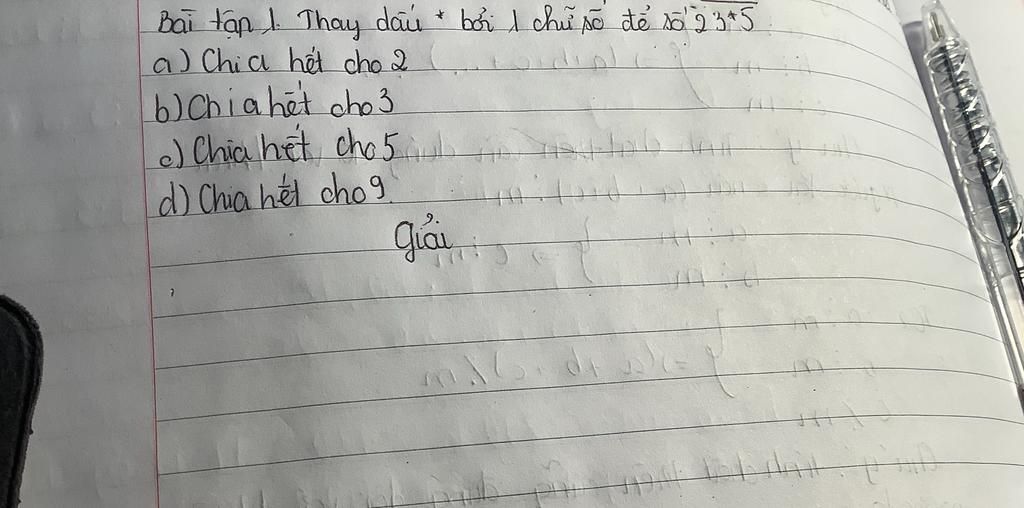 Bài tập 1. Thay dấu * bởi 1 chữ số để số 23*5
a) Chia hết cho 2
b) Chia hết cho 3
c) Chia hết cho 5
d) Chia hết cho 9.
Giải